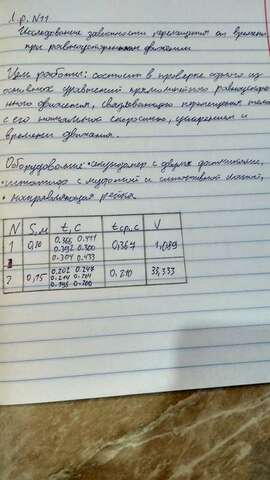 Л.р. №11
Исследование зависимости перемещения от времени
при равноускоренном движении
Цель работы: состоит в проверке одного из
основных уравнений прямолинейного равноускорен
ного движения, связывающего перемещение тела
с его начальной скоростью, ускорением и
временем движения.
Оборудование: • секундомер с двумя датчиками,
• штатив с муфтой и
• направляющая рейка
N S, м t, с tср. с V
1 0,20 0.366 0.411 0.392 0.300 0.304 0.433 0.367 1,089
2 0,15 0.202 0.247 0.214 0.204 0.195 0.200 0.210 33,333